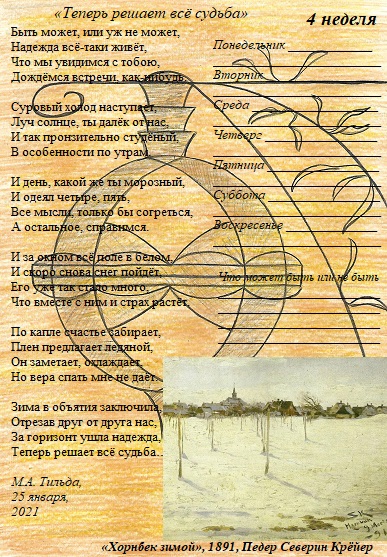 «Теперь решает всё судьба»
4 неделя
Быть может, или уж не может,
Надежда всё-таки живёт,
Что мы увидимся с тобою,
Дождёмся встречи, как-нибудь.
Суровый холод наступает,
Луч солнце, ты далёк от нас,
И так пронзительно студёный,
В особенности по утрам.
И день, какой же ты морозный,
И одеял четыре, пять,
Все мысли, только бы согреться,
А остальное, справимся.
И за окном всё поле в белом,
И скоро снова снег пойдёт,
Его уже так стало много,
Что вместе с ним и страх растёт.
По капле счастье забирает,
Плен предлагает ледяной,
Он заметает, охлаждает,
Но вера спать мне не даёт.
Зима в объятия заключила,
Отрезав друг от друга нас,
За горизонт ушла надежда,
Теперь решает всё судьба…
М.А. Тильда,
25 января,
2021
Понедельник
Вторник
Среда
Четверг
Пятница
Суббота
Воскресенье
Что может быть или не быть
«Хорнбек зимой», 1891, Педер Северин Крёйер